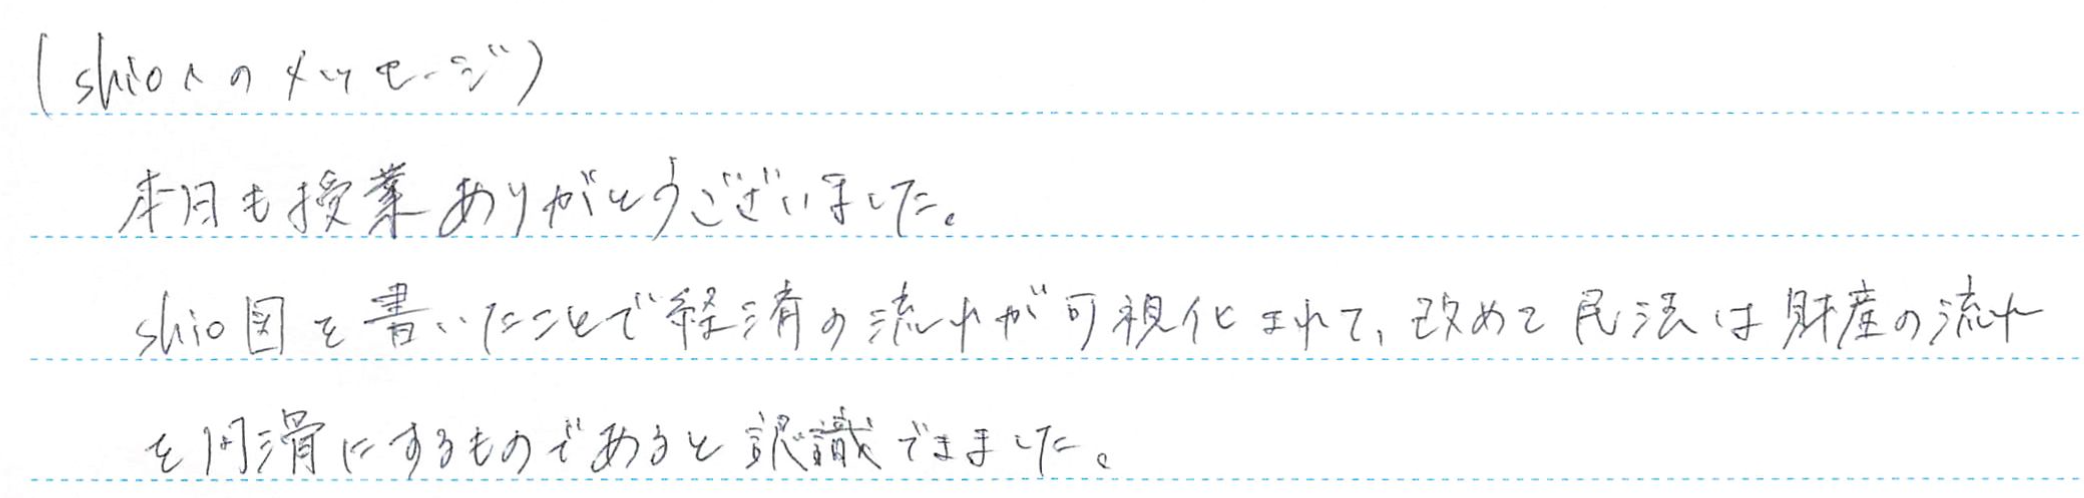 (shioへのメッセージ)
本日も授業ありがとうございました。
shio図を書いたことで経済の流れが可視化されて、改めて民法は財産の流れ
を円滑にするものであると認識できました。